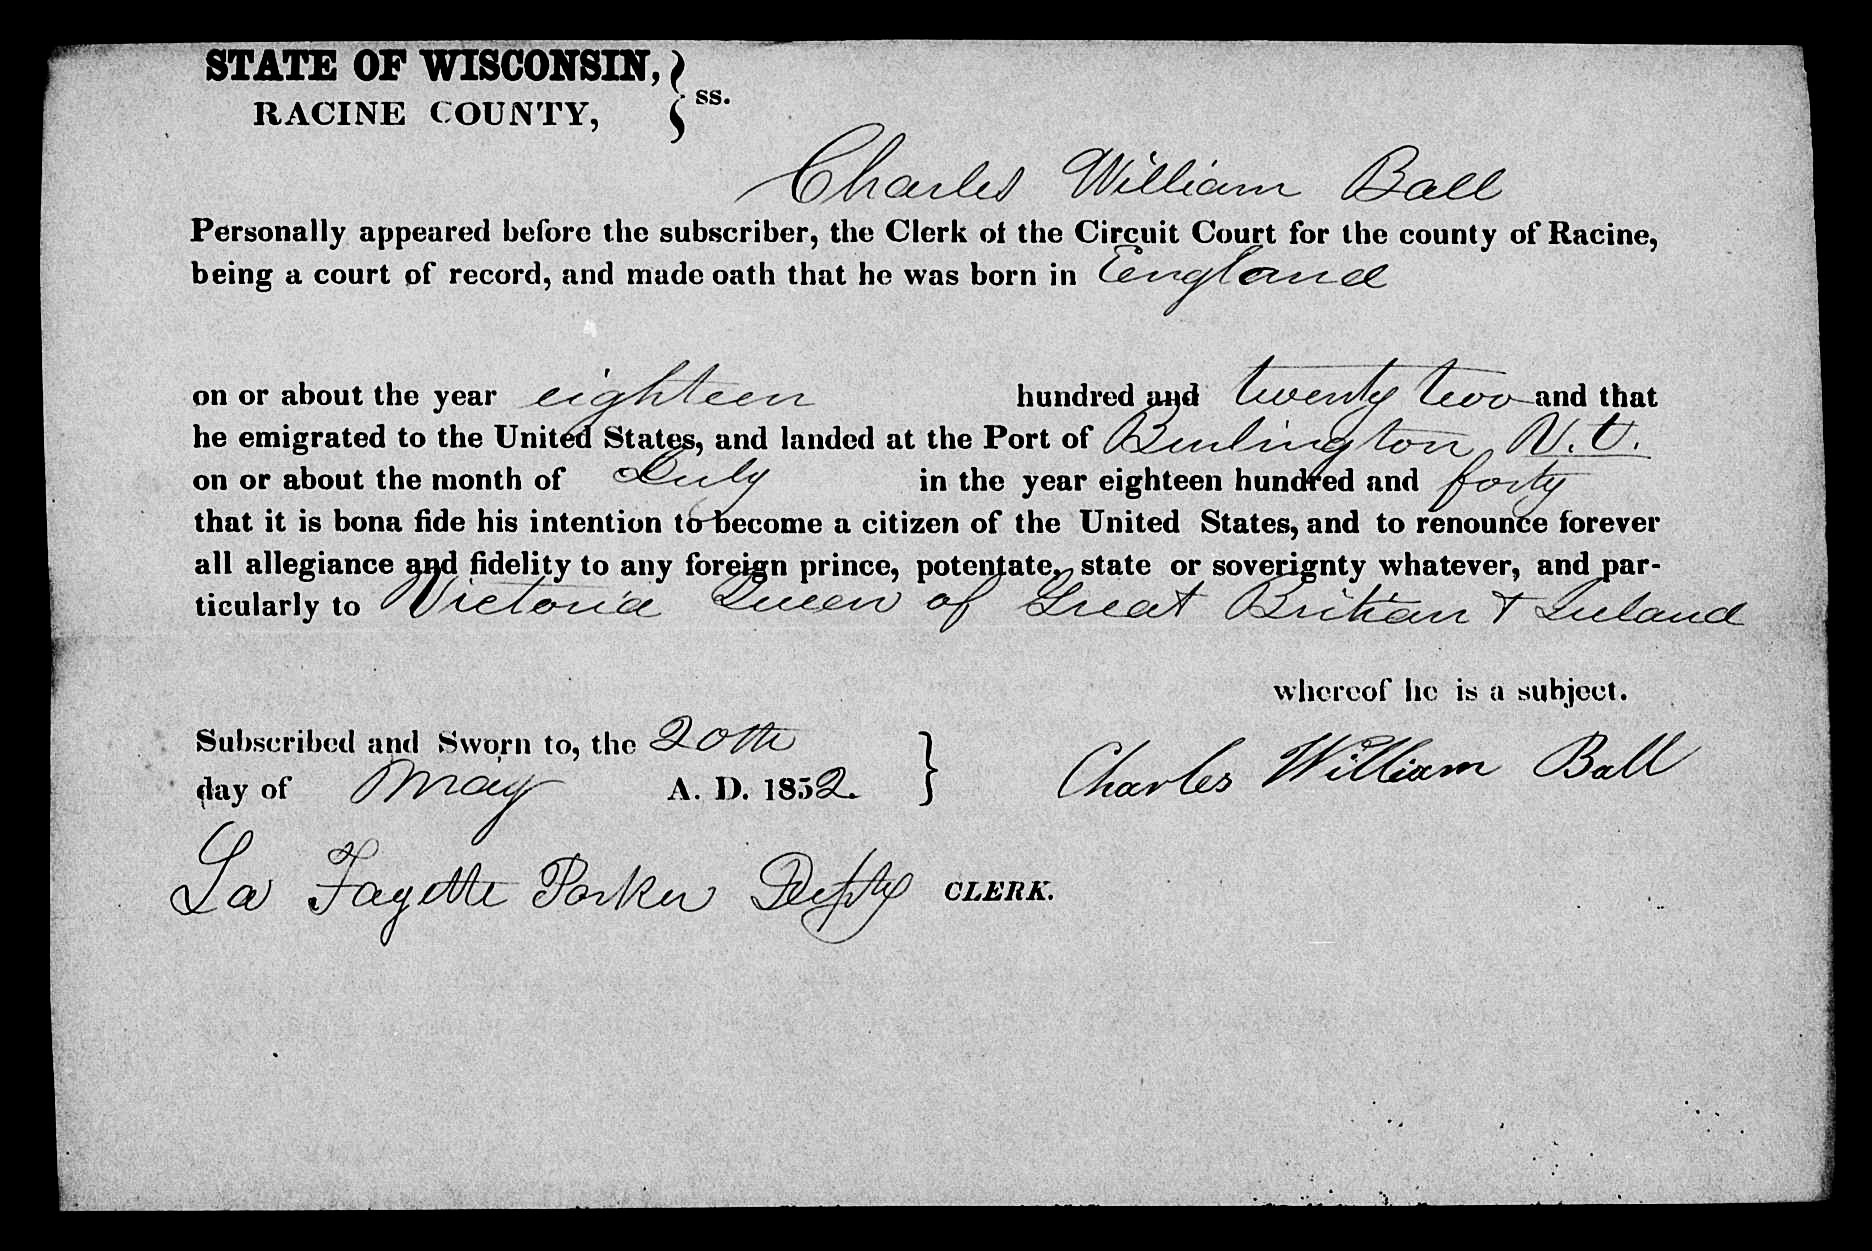 STATE OF WISCONSIN, } ss.
RACINE COUNTY,
Charles William Ball
Personally appeared before the subscriber, the Clerk of the Circuit Court for the county of Racine,
being a court of record, and made oath that he was born in England
on or about the year eighteen hundred and twenty two and that
he emigrated to the United States, and landed at the Port of Burlington V.t.
on or about the month of July in the year eighteen hundred and forty
that it is bona fide his intention to become a citizen of the United States, and to renounce forever
all allegiance and fidelity to any foreign prince, potentate, state or soverignty whatever, and par-
ticularly to Victoria Queen of Great Britian & Ireland
whereof he is a subject.
Subscribed and Sworn to, the 20th }
day of May A. D. 1852. Charles William Ball
La Fayette Parker Depty CLERK.